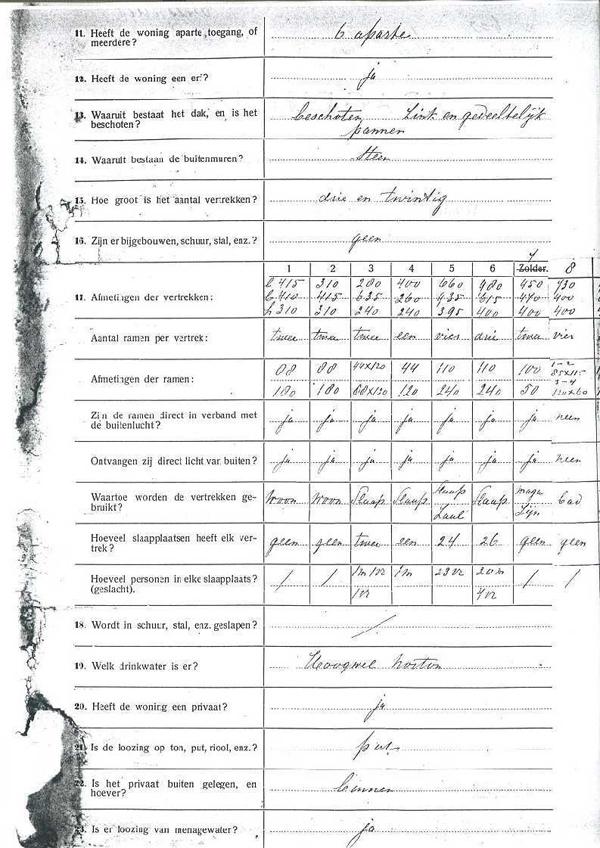 11. Heeft de woning aparte toegang, of meerdere? 6 aparte
12. Heeft de woning een erf? ja
13. Waaruit bestaat het dak, en is het beschoten? beschoten Zink en gedeeltelijk pannen
14. Waaruit bestaan de buitenmuren? Steen
15. Hoe groot is het aantal vertrekken? drie en twintig
16. Zijn er bijgebouwen, schuur, stal, enz.? geen
1 2 3 4 5 6 7 Zolder. 8
17. Afmetingen der vertrekken:
l 415 310 280 400 660 980 450 730
b 410 415 635 260 435 615 440 400
h 310 310 240 240 395 400 400 400
Aantal ramen per vertrek: twee twee twee een vier drie twee vier
Afmetingen der ramen:
88 88 44x120 44 110 110 100 1-2 85x115
180 180 88x120 120 240 240 50 3-4 120x60
Zijn de ramen direct in verband met de buitenlucht? ja ja ja ja ja ja ja neen
Ontvangen zij direct licht van buiten? ja ja ja ja ja ja ja neen
Waartoe worden de vertrekken gebruikt? Woon Woon Slaap Slaap Slaap Zaal Slaap maga Zijn bad
Hoeveel slaapplaatsen heeft elk vertrek? geen geen twee een 24 26 geen geen
Hoeveel personen in elke slaapplaats? (geslacht). / / 1m 1vr 1vr 1m 23vr 20m 4vr / /
18. Wordt in schuur, stal, enz. geslapen? /
19. Welk drinkwater is er?
20. Heeft de woning een privaat? ja
21. Is de loozing op ton, put, riool, enz.? put
22. Is het privaat buiten gelegen, en hoever? binnen
23. Is er loozing van menagewater? ja